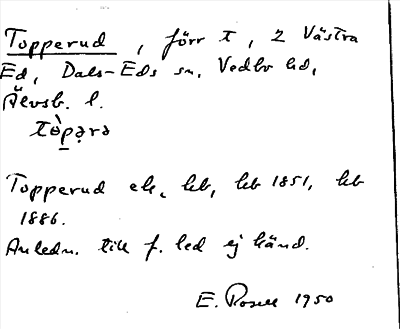 Topperud, förr t, 2 Västra
Ed, Dals-Eds sn, Vedbo hd,
Älvsb. l.
tòpərə
Topperud ek, kb, kb 1851, kb
1886.
Anledn. till f. led ej känd.
E. Rosell 1950